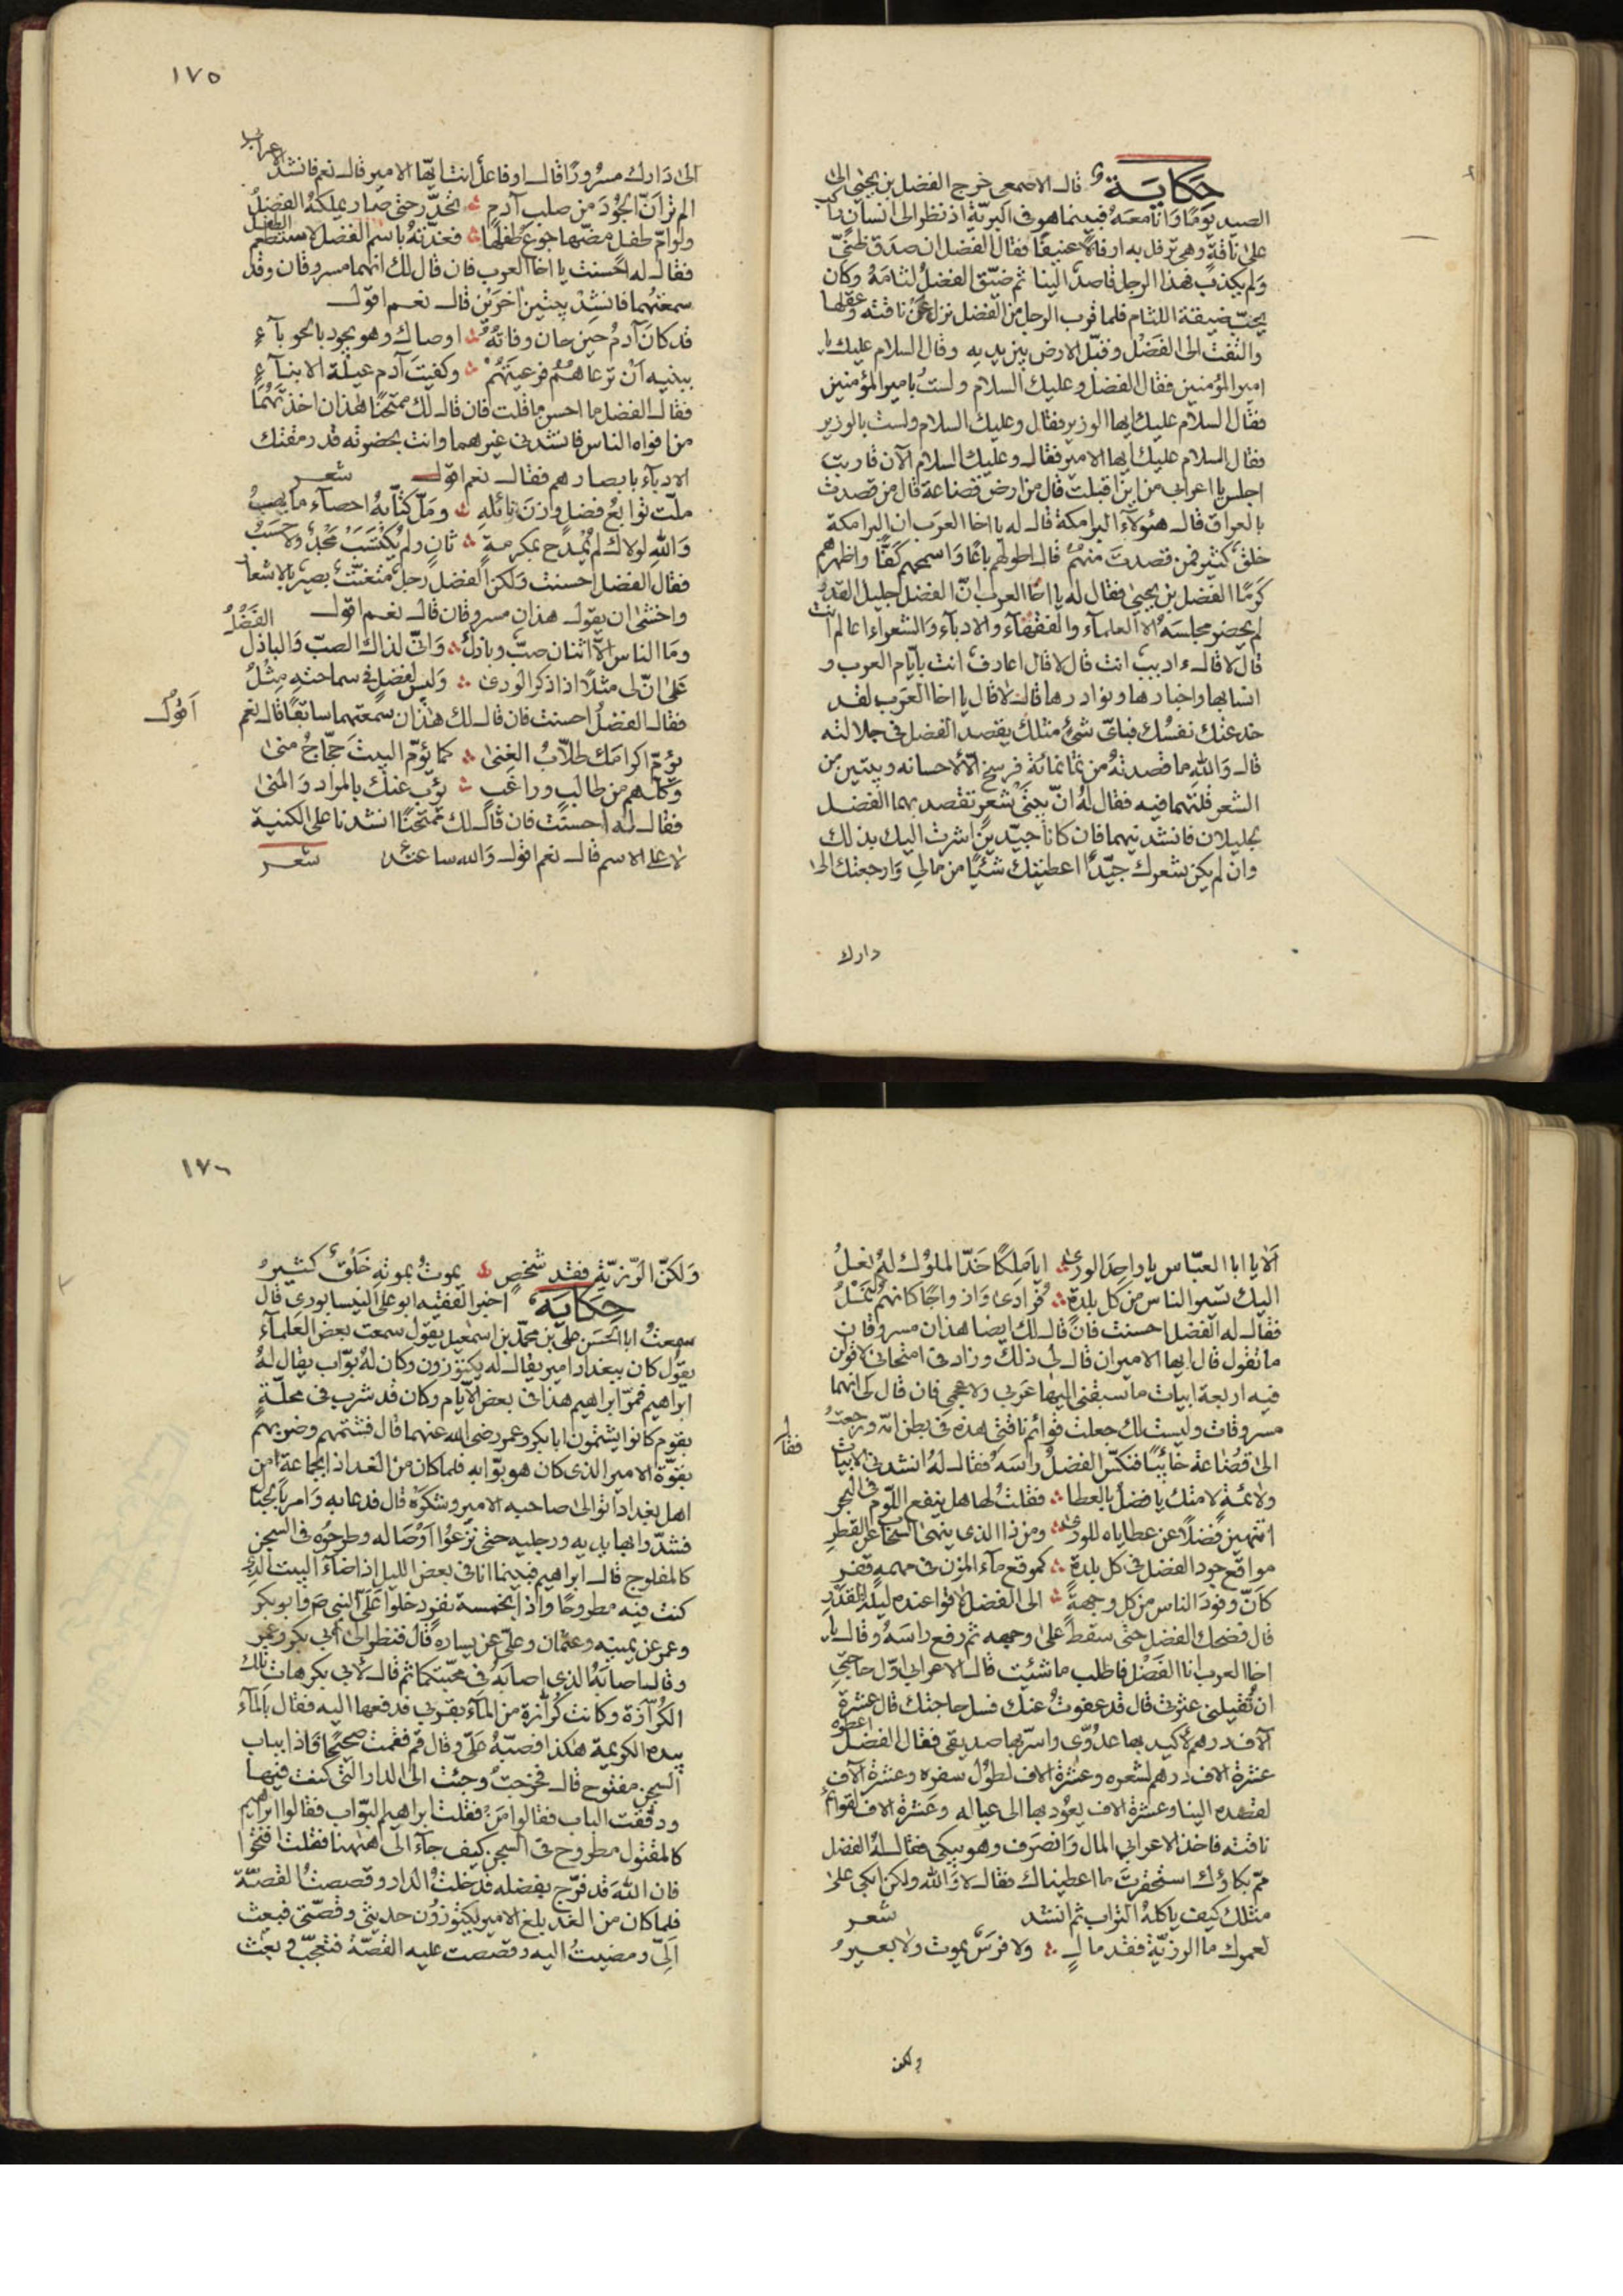 حكاية قال الاصمعي خرج الفضل بن يحيى الى
الصيد يومًا وانا معه فبينما هو في البريّة اذ نظر الى انسان راكب
على ناقةٍ وهي ترفل به ارفالا عنيفًا فقال الفضل ان صدق ظنّي
ولم يكذب فهذا الرجل قاصدٌ الينا ثم ضيّق الفضل لثامه وكان
يحبّ ضيقة اللثام فلما قرب الرجل من الفضل نزل عن ناقته وعقلها
والتفت الى الفضل وقبّل الارض بين يديه وقال السلام عليك يا
امير المؤمنين فقال الفضل وعليك السلام ولستُ بامير المؤمنين
فقال السلام عليك ايها الوزير فقال وعليك السلام ولست بالوزير
فقال السلام عليك ايها الامير فقال وعليك السلام الآن قاربت
اجلس يا اعرابي من اين اقبلت قال من ارض قضاعة قال من قصدت
بالعراق قال هؤلآء البرامكة قال له يا اخا العرب ان البرامكة
خلقٌ كثير فمن قصدت منهم قال اطولهم باعًا واسمحهم كفًّا واظهرهم
كرمًا الفضل بن يحيى فقال له يا اخا العرب انّ الفضل جليل القدر
لم يحضر مجلسه الا العلمآء والفقهآء والادبآء والشعراء اعالم انت
قال لا قال ءاديب انت قال لا قال اعارف انت بأيّام العرب و
انسابها واخبارها ونوادرها قال لا قال يا اخا العرب لقد
خدعتك نفسك فبايّ شئ مثلك يقصد الفضل في جلالته
قال والله ما قصدته من ثمانمائة فرسخ الّا لاحسانه وبيتين من
الشعر قلتهما فيه فقال له انّ بيتي شعر تقصد بهما الفضل
لجليلان فانشدنيهما فان كانا جيّدين اشرت اليك بذلك
وان لم يكن شعرك جيّدًا اعطيتك شئيًا من مالي وارجعتك الى
دارك
١٧٥
الى دارك مسرورًا قال اوفاعل انت ايّها الامير قال نعم فانشد الاعرابي
الم تر انّ الجود من صلب آدم ؞ تحدّر حتى صار يملكه الفضل
ولو امّ طفل مضّها جوع طفلها ؞ فغذته باسم الفضل لاستطعم الطفل
فقال له احسنت يا اخا العرب فان قال لك انهما مسروقان وقد
سمعتهما فانشد بيتين اخرين قال نعم اقول
قد كان آدم حين حان وفاته ؞ اوصاك وهو يجود بالحوبآء
ببنيه ان ترعاهم فرعيتهم ؞ وكفيت آدم عيلة الابنآء
فقال الفضل ما احسن ما قلت فان قال لك ممتحنا هذان اخذتهما
من افواه الناس فانشدني غيرهما وانت بحضرته قد رمقتك
الادبآء بابصارهم فقال نعم اقول شعر
ملّت توابع فضل وازن نائله ؞ وملّ كتّابه احصآء ما يهب
والله لولاك لم يُمدح بمكرمة ؞ ثانٍ ولم يكتسب مجد ولا حسب
فقال الفضل احسنت ولكن الفضل رجل متعنّت بصير بالاشعار
واخشى ان يقول هذان مسروقان قال نعم اقول
وما الناس الّا اثنان صبّ وباذل ؞ وانّي لذاك الصبّ والباذل الفضل
على انّ لي مثلًا اذا ذكر الورى ؞ وليس لفضل في سماحته مثل
فقال الفضل احسنت فان قال لك هذان سمعتهما سابقًا قال نعم اقول
يؤمّ اكرامك طلّاب الغنى ؞ كما يؤمّ البيت حجّاج منى
وكلّهم من طالب وراغب ؞ يؤب عنك بالمراد والمنى
فقال له احسنت فان قال لك ممتحنًا انشدنا على الكنية
لا على الاسم قال نعم اقول والله ساعتئذ شعر
الا يا ابا العبّاس يا واحد الورى ؞ ايا ملكًا خدّ الملوك له نعل
اليك تسير الناس من كل بلدة ؞ فرادى وازواجًا كانهم نمل
فقال له الفضل احسنت فان قال لك ايضا هذان مسروقان
ما تقول قال ايها الامير ان قال لي ذلك وزاد في امتحاني لاقولن
فيه اربعة ابيات ما يسبقني اليها عربي ولا عجمي فان قال لي انهما
مسروقات وليست لك جعلت قوائم ناقتي هذه في بطن امّه ورجعت
الى قضاعة خائبًا فنكّس الفضل راسه فقال له انشدني الابيات فقال
ولائمة لامتك يا فضل بالعطا ؞ فقلت لها هل ينفع اللّوم في البحر
اتنهين فضلًا عن عطاياه للورى ؞ ومن ذا الذي ينهى السخا عن القطر
مواقع جود الفضل في كل بلدة ؞ كموقع مآء المزن في مهمه قفر
كانّ وفود الناس من كل وجهة ؞ الى الفضل لاقوا عنده ليلة القدر
قال فضحك الفضل حتى سقط على وجهه ثم رفع راسه وقال يا
اخا العرب انا الفضل فاطلب ما شئيت قال الاعرابي اوّل حاجتي
ان تقيلني عثرتي قال قد عفوت عنك فسل حاجتك قال عشرة
آلاف درهم لاكيد بها عدوّي واسرّ بها صديقي فقال الفضل اعطوه
عشرة الاف درهم لشعره وعشرة الاف لطول سفره وعشرة آلاف
لقصده الينا وعشرة الاف يعود بها الى عياله وعشرة الاف لقوائم
ناقته فاخذ الاعرابي المال وانصرف وهو يبكي فقال له الفضل
ممّ بكاؤك استحقرت ما اعطيناك فقال لا والله ولكن ابكي على
مثلك كيف ياكله التراب ثم انشد شعر
لعمرك ما الرزيّة فقد مال ؞ ولا فرسٌ يموت ولا بعير
ولكن
١٧٦
ولكنّ الرّزيّة فقد شخص ؞ يموت بموته خلقٌ كثير
حكاية اخبر الفقيه ابو علي النيسابوري قال
سمعت ابا الحسن علي بن محمّد بن اسمعيل يقول سمعت بعض العلمآء
يقول كان ببغداد امير يقال له يكتوزون وكان له بوّاب يقال له
ابراهيم فمرّ ابراهيم هذا في بعض الايّام وكان قد شرب في محلّة
بقوم كانوا يشتمون ابا بكر وعمر رضى الله عنهما قال فشتمهم وضربهم
بقوّة الامير الذي كان هو بوّابه فلما كان من الغد اذا بجماعة من
اهل بغداد اتوا الى صاحبه الامير وشكوه قال فدعا به وامر بالجنّا
فشدّوا بها يديه ورجليه حتى نزّعوا اوصاله وطرحوه في السجن
كالمفلوج قال ابراهيم فبينما انا في بعض الليل اذا ضآء البيت الذي
كنت فيه مطروحًا واذا بخمسة نفر دخلوا عليّ النبي ص وابو بكر
وعمر عن يمينه وعثمان وعليّ عن يساره قال فنظر الى ابي بكر وعمر
وقال اصابه الذي اصابه في محبّتكما ثم قال لابي بكر هات تلك
الكرّازة وكانت كرّازة من المآء بقربي فدفعها اليه فقال بالمآء
بيده الكريمة هكذا فصبّه عليّ وقال قم فقمت صحيحًا فاذا بباب
السجن مفتوح قال فخرجت وجئت الى الدار التي كنت فيها
ودققت الباب فقالوا من فقلت ابراهيم البوّاب فقالوا ابراهيم
كالمقتول مطروح في السجن كيف جآء الى ههنا فقلت افتحوا
فان الله قد فرّج بفضله فدخلت الدار وقصصت القصّة
فلما كان من الغد بلغ الامير يكتوزون حديثي وقصّتي فبعث
اليّ ومضيت اليه وقصصت عليه القصّة فتعجّب وبعث